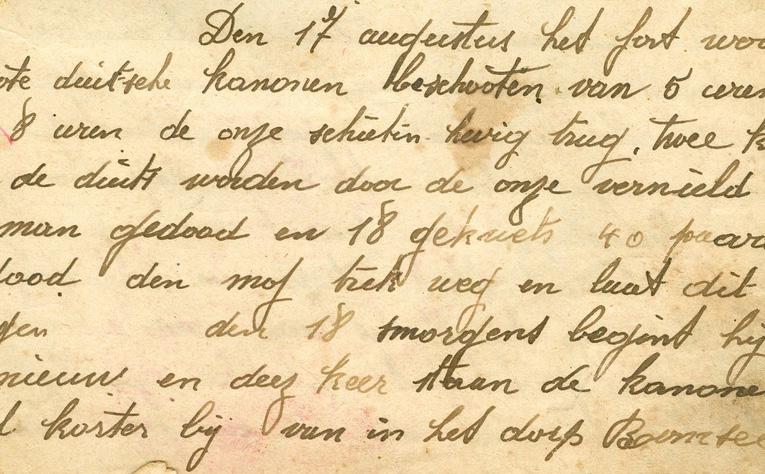 Den 17 augustus het fort wor
ote duitsche kanonen beschooten van 5 uren
8 uren de onze schietin hevig trug. twee k
de duits worden door de onze vernield
man gedood en 18 gekwets 40 paard
dood den mof trek weg en laat dit
gen den 18 smorgens begint hij
nieuw en deez keer staan de kanone
l korter bij van in het dorp Boomsee